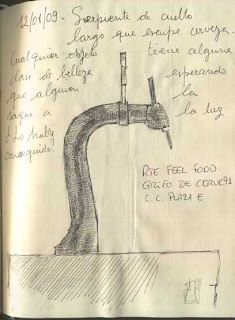 12/01/09. Serpiente de cuello
largo que escupe cerveza.
Cualquier objeto tiene alguna
clase de belleza esperando
que alguien la
saque a la luz
¿Lo habré
conseguido?
RTE. FEEL FOOD.
GRIFO DE CERVEZA
C.C. PLAZA E